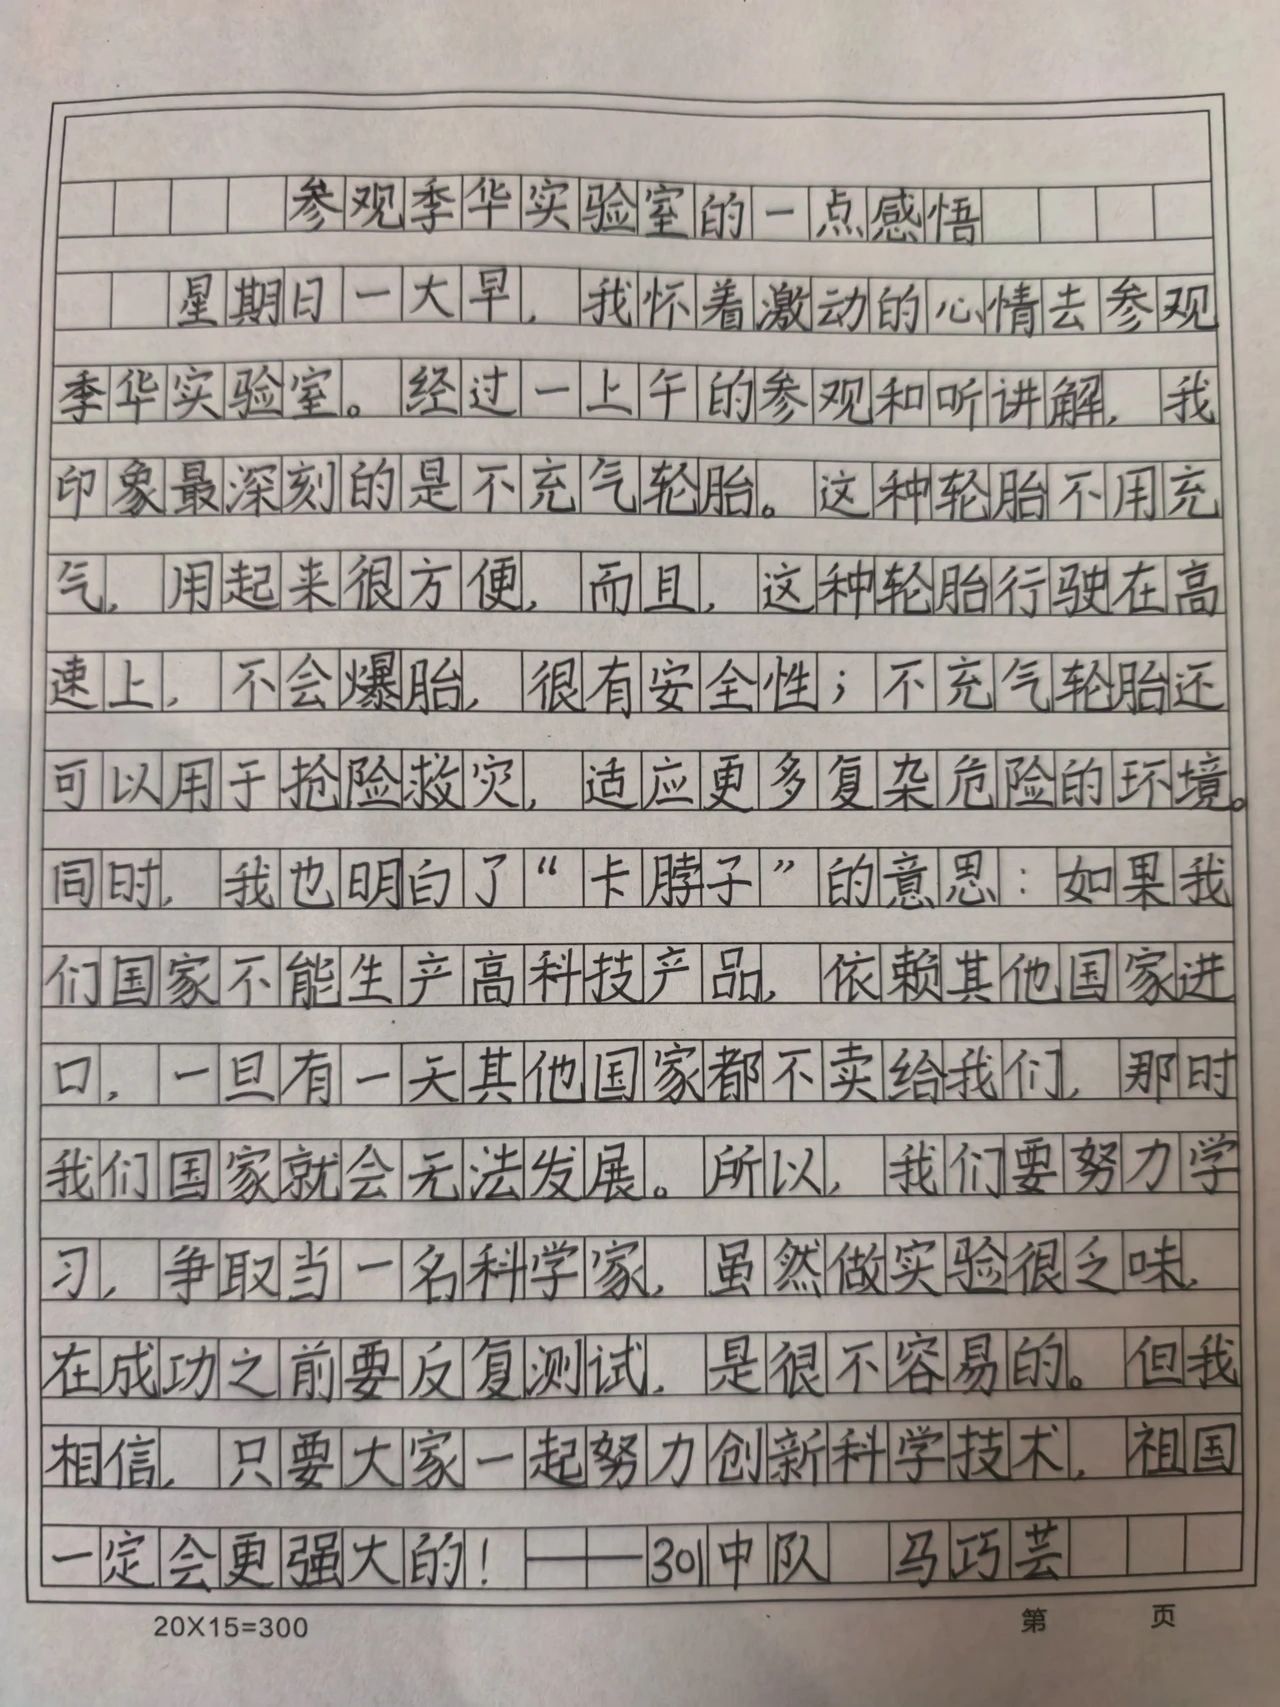 参观季华实验室的一点感悟
星期日一大早，我怀着激动的心情去参观
季华实验室。经过一上午的参观和听讲解，我
印象最深刻的是不充气轮胎。这种轮胎不用充
气，用起来很方便，而且，这种轮胎行驶在高
速上，不会爆胎，很有安全性；不充气轮胎还
可以用于抢险救灾，适应更多复杂危险的环境。
同时，我也明白了“卡脖子”的意思：如果我
们国家不能生产高科技产品，依赖其他国家进
口，一旦有一天其他国家都不卖给我们，那时
我们国家就会无法发展。所以，我们要努力学
习，争取当一名科学家，虽然做实验很乏味，
在成功之前要反复测试，是很不容易的。但我
相信，只要大家一起努力创新科学技术，祖国
一定会更强大的！——301中队 马巧芸
20X15=300 第 页